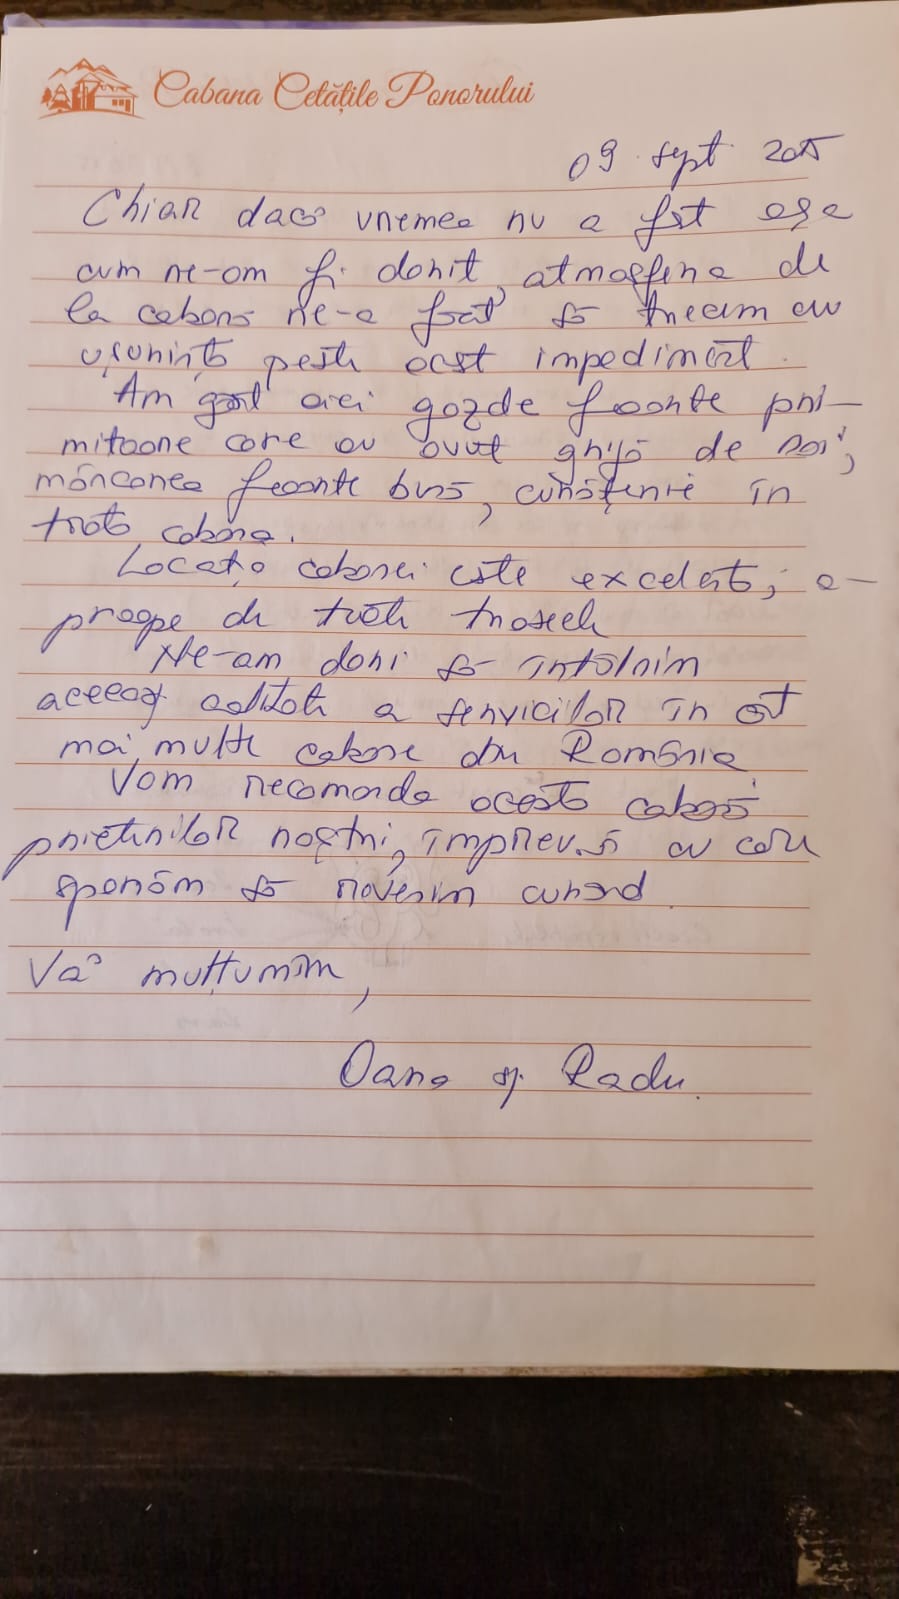 Cabana Cetățile Ponorului
09 sept 2015
Chiar dacă vremea nu a fost așa
cum ne-am fi dorit, atmosfera de
la cabană ne-a făcut să trecem cu
ușurință peste acest impediment.
Am găsit aici gazde foarte pri-
mitoare care au avut grijă de noi,
mâncarea foarte bună, curățenie în
toată cabana.
Locația cabanei este excelentă, a-
proape de toate traseele
Ne-am dori să întâlnim
aceeași calitate a serviciilor în cât
mai multe cabane din România.
Vom recomanda această cabană
prietenilor noștri, împreună cu care
sperăm să revenim curând.
Vă mulțumim,
Oana și Radu.